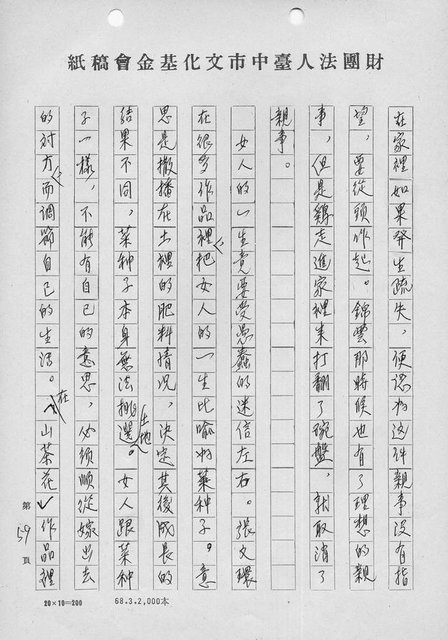 財團法人臺中市文化基金會稿紙
在家裡如果發生疏失，便認為這件親事沒有指
望，要從頭作起。錦雲那時候也有了理想的親
事，但是雞走進家裡來打翻了碗盤，就取消了
親事。
女人的一生竟要受愚蠢的迷信左右。張文環
在很多作品裡把女人的一生比喻為菜種子。意
思是撒播在土裡的肥料情況，決定其後成長的
結果不同，菜種子本身無法挑選土地。女人跟菜種
子一樣，不能有自己的意思，必須順從嫁出去
的對方而調節自己的生活。在山茶花作品裡
第59頁
20×10=200
68.3.2,000本